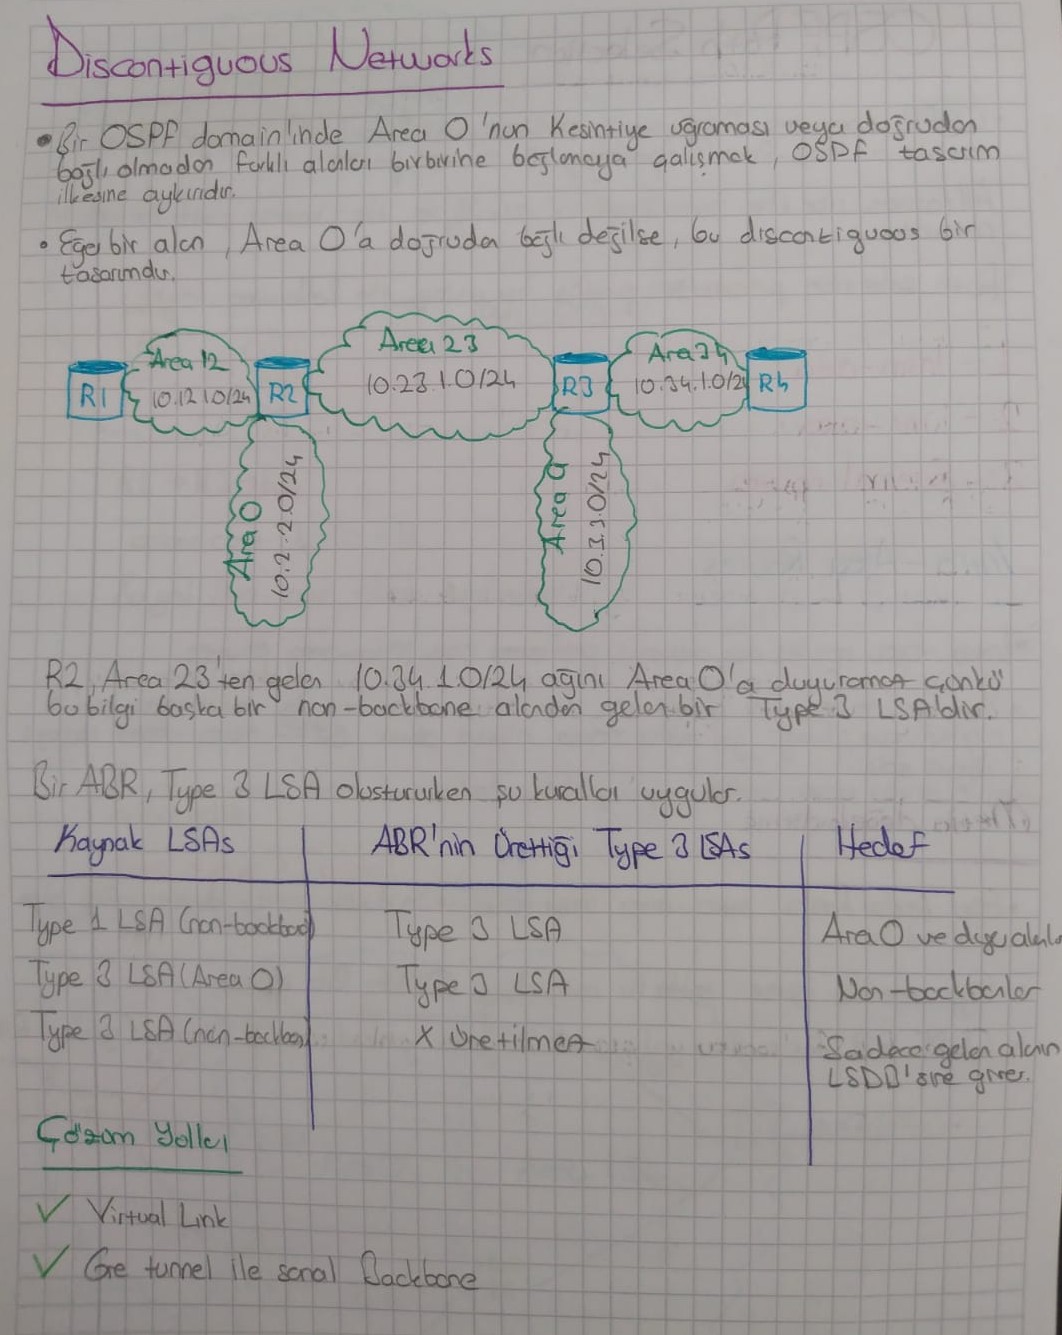 Discontiguous Networks
• Bir OSPF domain'inde Area 0'nun Kesintiye uğraması veya doğrudan
bağlı olmadan farklı alanları birbirine bağlamaya çalışmak, OSPF tasarım
ilkesine aykırıdır.
• Eğer bir alan, Area 0'a doğrudan bağlı değilse, bu discontiguous bir
tasarımdır.
R1 Area 12 10.12.1.0/24 R2 Area 23 10.23.1.0/24 R3 Area 34 10.34.1.0/24 R4
Area 0 10.2.2.0/24
Area 0 10.3.3.0/24
R2, Area 23'ten gelen 10.34.1.0/24 ağını Area 0'a duyuramaz çünkü
bu bilgi başka bir non-backbone alandan gelen bir Type 3 LSA'dır.
Bir ABR, Type 3 LSA oluştururken şu kuralları uygular.
Kaynak LSAs ABR'nin Ürettiği Type 3 LSAs Hedef
Type 1 LSA (non-backbone) Type 3 LSA Area 0 ve diğer alanlar
Type 3 LSA (Area 0) Type 3 LSA Non-backbonlar
Type 3 LSA (non-backbone) X Üretilmez Sadece gelen alanın
LSDB'sine girer.
Çözüm Yolları
✓ Virtual Link
✓ Gre tunnel ile sanal Backbone